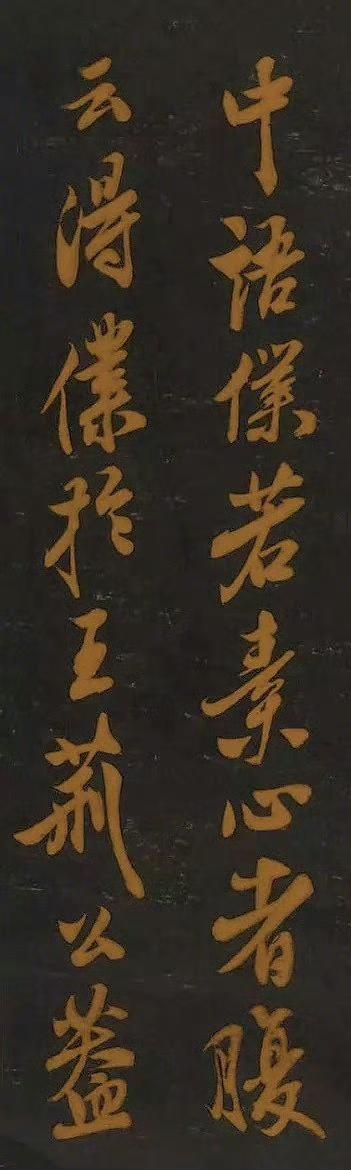 中語僕若素心者腹
云得僕於王荆公蓋